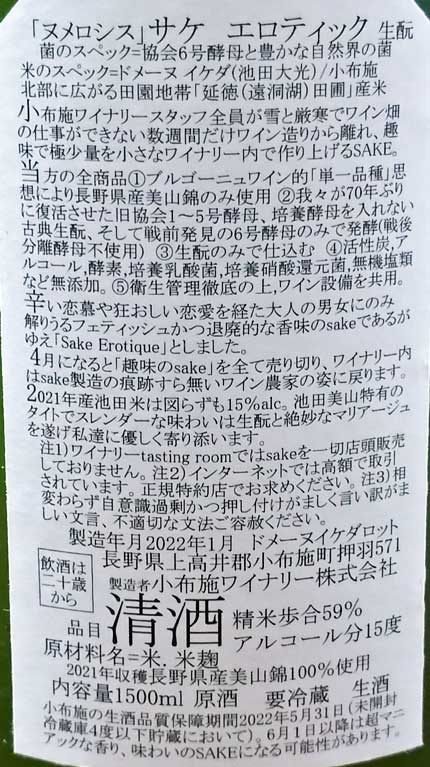 「ヌメロシス」サケ　エロティック 生酛
菌のスペック=協会6号酵母と豊かな自然界の菌
米のスペック=ドメーヌ イケダ(池田大光)/小布施
北部に広がる田園地帯「延徳(遠洞湖)田圃」産米
小布施ワイナリースタッフ全員が雪と厳寒でワイン畑
の仕事ができない数週間だけワイン造りから離れ、趣
味で極少量を小さなワイナリー内で作り上げるSAKE。
当方の全商品①ブルゴーニュワイン的「単一品種」思
想により長野県産美山錦のみ使用 ②我々が70年ぶり
に復活させた旧協会1～5号酵母、培養酵母を入れない
古典生酛、そして戦前発見の6号酵母のみで発酵(戦後
分離酵母不使用) ③生酛のみで仕込む ④活性炭,ア
ルコール,酵素,培養乳酸菌,培養硝酸還元菌,無機塩類
など無添加。⑤衛生管理徹底の上,ワイン設備を共用。
辛い恋慕や狂おしい恋愛を経た大人の男女にのみ
解りうるフェティッシュかつ退廃的な香味のsakeであるが
ゆえ「Sake Erotique」としました。
4月になると「趣味のsake」を全て売り切り、ワイナリー内
はsake製造の痕跡すら無いワイン農家の姿に戻ります。
2021年産池田米は図らずも15%alc。池田美山特有の
タイトでスレンダーな味わいは生酛と絶妙なマリアージュ
を遂げ私達に優しく寄り添います。
注1)ワイナリーtasting roomではsakeを一切店頭販売
しておりません。注2) インターネットでは高額で取引
されています。正規特約店でお求めください。注3)相
変わらず自意識過剰かつ押し付けがましく言い訳がま
しい文言、不適切な文法ご容赦ください。
製造年月2022年1月　ドメーヌイケダロット
飲酒は
二十歳
から
長野県上高井郡小布施町押羽571
製造者 小布施ワイナリー株式会社
品目 清酒 精米歩合59%
アルコール分15度
原材料名=米. 米麹
2021年収穫長野県産美山錦100%使用
内容量1500ml 原酒　要冷蔵　生酒
小布施の生酒品質保障期間2022年5月31日(未開封
冷蔵庫4度以下貯蔵において)。6月1日以降は超マニ
アックな香り、味わいのSAKEになる可能性があります。